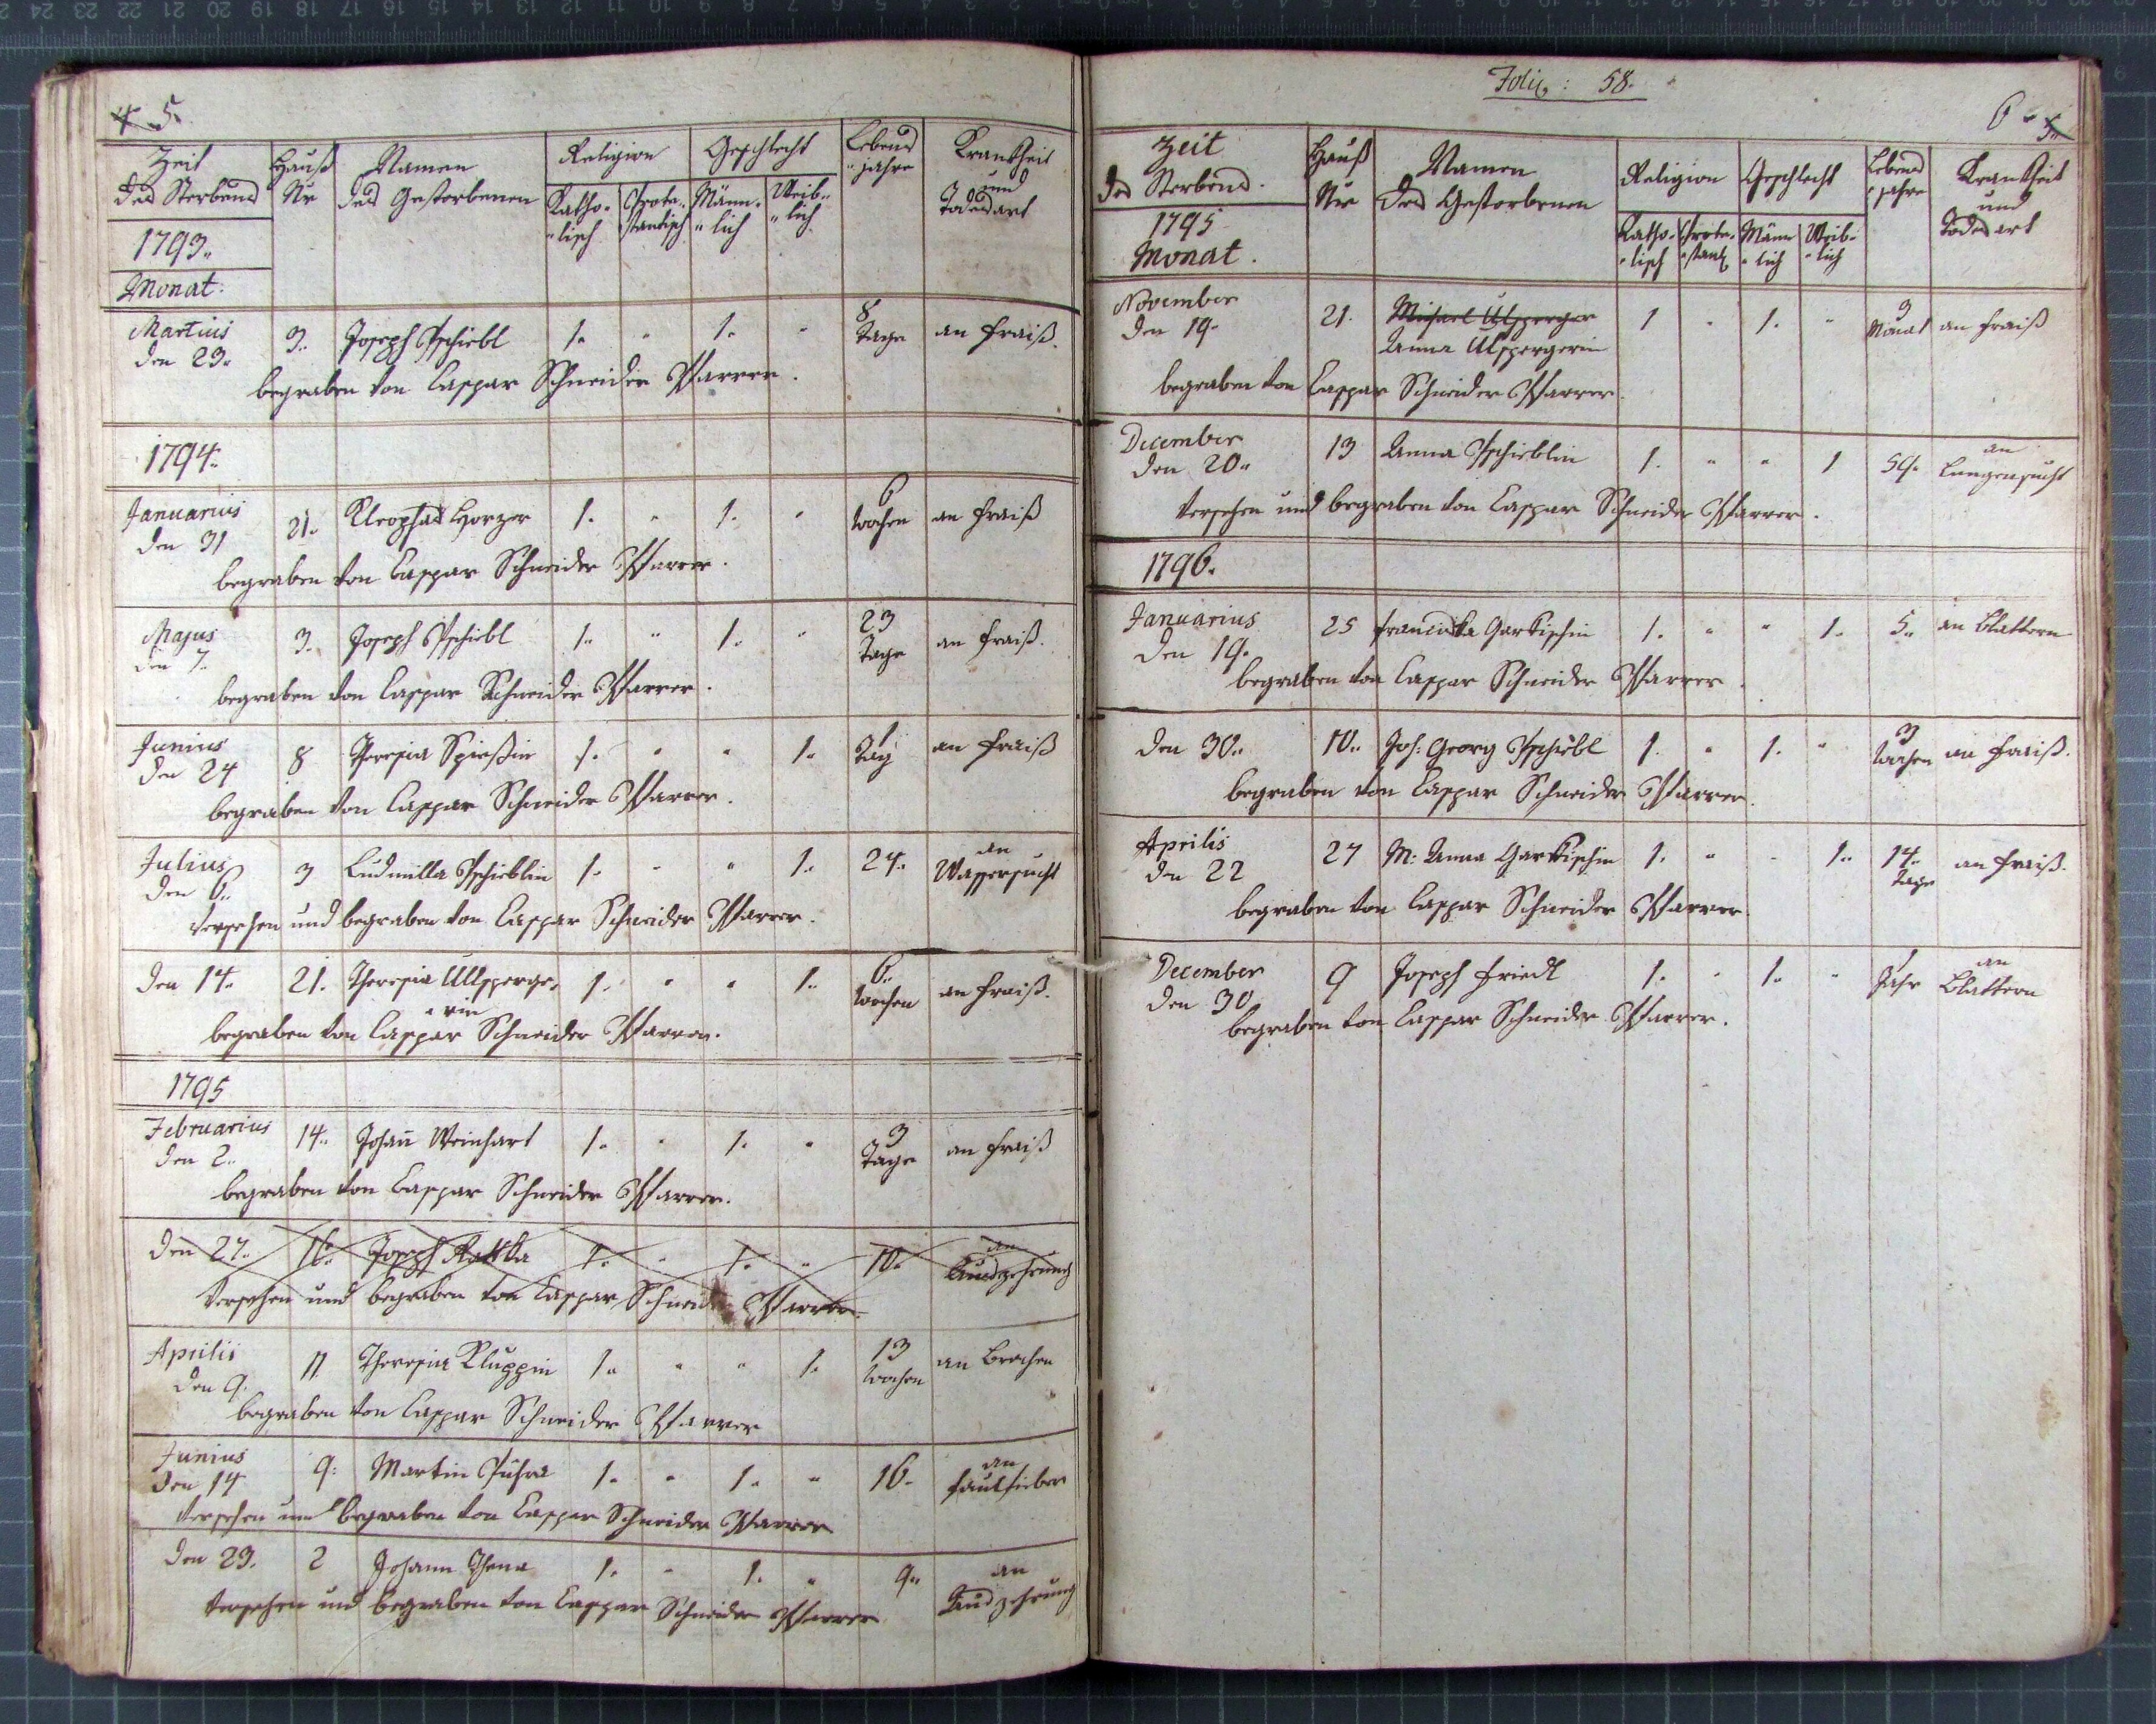 5.
Zeit des Sterbens Hauß Nr Namen des Gestorbenen Religion Geschlecht Lebens jahre Krankheit und Todesart
Katho- lisch Prote- stantisch Männ- lich Weib- lich
1793.
Monat:
Martius den 23. 3. Joseph Pschiebl 1. " 1. " 8 Tage an Fraiß.
begraben von Caspar Schneider Pfarrer.
1794.
Januarius den 31 21. Kleophas Horzer 1. " 1. " 6 Wochen an Fraiß
begraben von Caspar Schneider Pfarrer.
Majus den 7. 3. Joseph Pschiebl 1. " 1. " 23 Tage an Fraiß.
begraben von Caspar Schneider Pfarrer.
Junius den 24 8 Theresia Spießin 1. " " 1. 1 Tag an Fraiß
begraben von Caspar Schneider Pfarrer.
Julius den 6. 3 Ludmilla Pschieblin 1. " " 1. 24. an Wassersucht
versehen und begraben von Caspar Schneider Pfarrer.
den 14. 21. Theresia Ullsperge- rin 1. " " 1. 6. Wochen an Fraiß.
begraben von Caspar Schneider Pfarrer.
1795
Februarius den 2. 14. Johañ Weinhart 1. " 1. " 3 Tage an Fraiß
begraben von Caspar Schneider Pfarrer.
den 27. 16. Joseph 1. " 1. " 10. an Auszehrung
versehen und begraben von Caspar Schneider Pfarrer.
Aprilis den 9. 11. Theresia Kluppin 1. " " 1. 13 Wochen an Brechen
begraben von Caspar Schneider Pfarrer
Junius den 14 9. Martin 1. " 1. " 16. an Faulfieber
versehen und begraben von Caspar Schneider Pfarrer
den 23. 2 Johann 1. " 1. " 9. an Auszehrung
versehen und begraben von Caspar Schneider Pfarrer
Folio: 58.
6 5.
Zeit des Sterbens. Hauß Nro Namen des Gestorbenen Religion Geschlecht Lebens jahre Krankheit und Todesart
Katho- lisch Prote- stant. Männ lich Weib- lich
1795
Monat.
November den 19. 21. Michael Ulsperger 1 " 1. " 3 Monat an Fraiß
Anna Ulspergerin
begraben von Caspar Schneider Pfarrer.
December den 20. 13 Anna Pschieblin 1. " " 1 54. an Lungensucht
versehen und begraben von Caspar Schneider Pfarrer.
1796.
Januarius den 19. 25 Franciska Gartischin 1. " " 1. 5. an Blattern
begraben von Caspar Schneider Pfarrer.
den 30. 10. Joh: Georg Pschiebl 1. " 1. " 3 Wochen an Fraiß.
begraben von Caspar Schneider Pfarrer.
Aprilis den 22 27 M: Anna Gartischin 1. " " 1. 14. Tage an Fraiß.
begraben von Caspar Schneider Pfarrer.
December den 30 9 Joseph Friedl 1. " 1. " 1 Jahr an Blattern
begraben von Caspar Schneider Pfarrer.